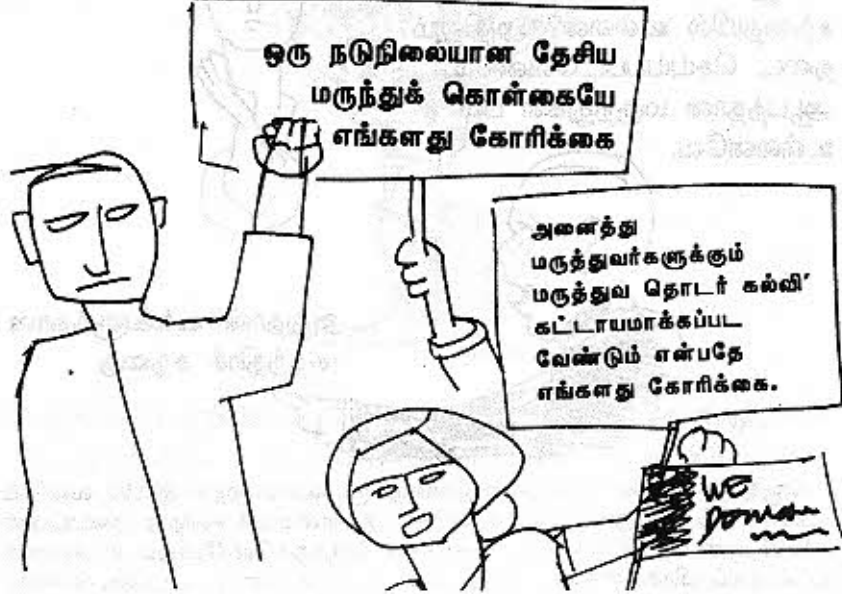 ஒரு நடுநிலையான தேசிய
மருந்துக் கொள்கையே
எங்களது கோரிக்கை
அனைத்து
மருத்துவர்களுக்கும்
மருத்துவ தொடர் கல்வி′
கட்டாயமாக்கப்பட
வேண்டும் என்பதே
எங்களது கோரிக்கை.
WE